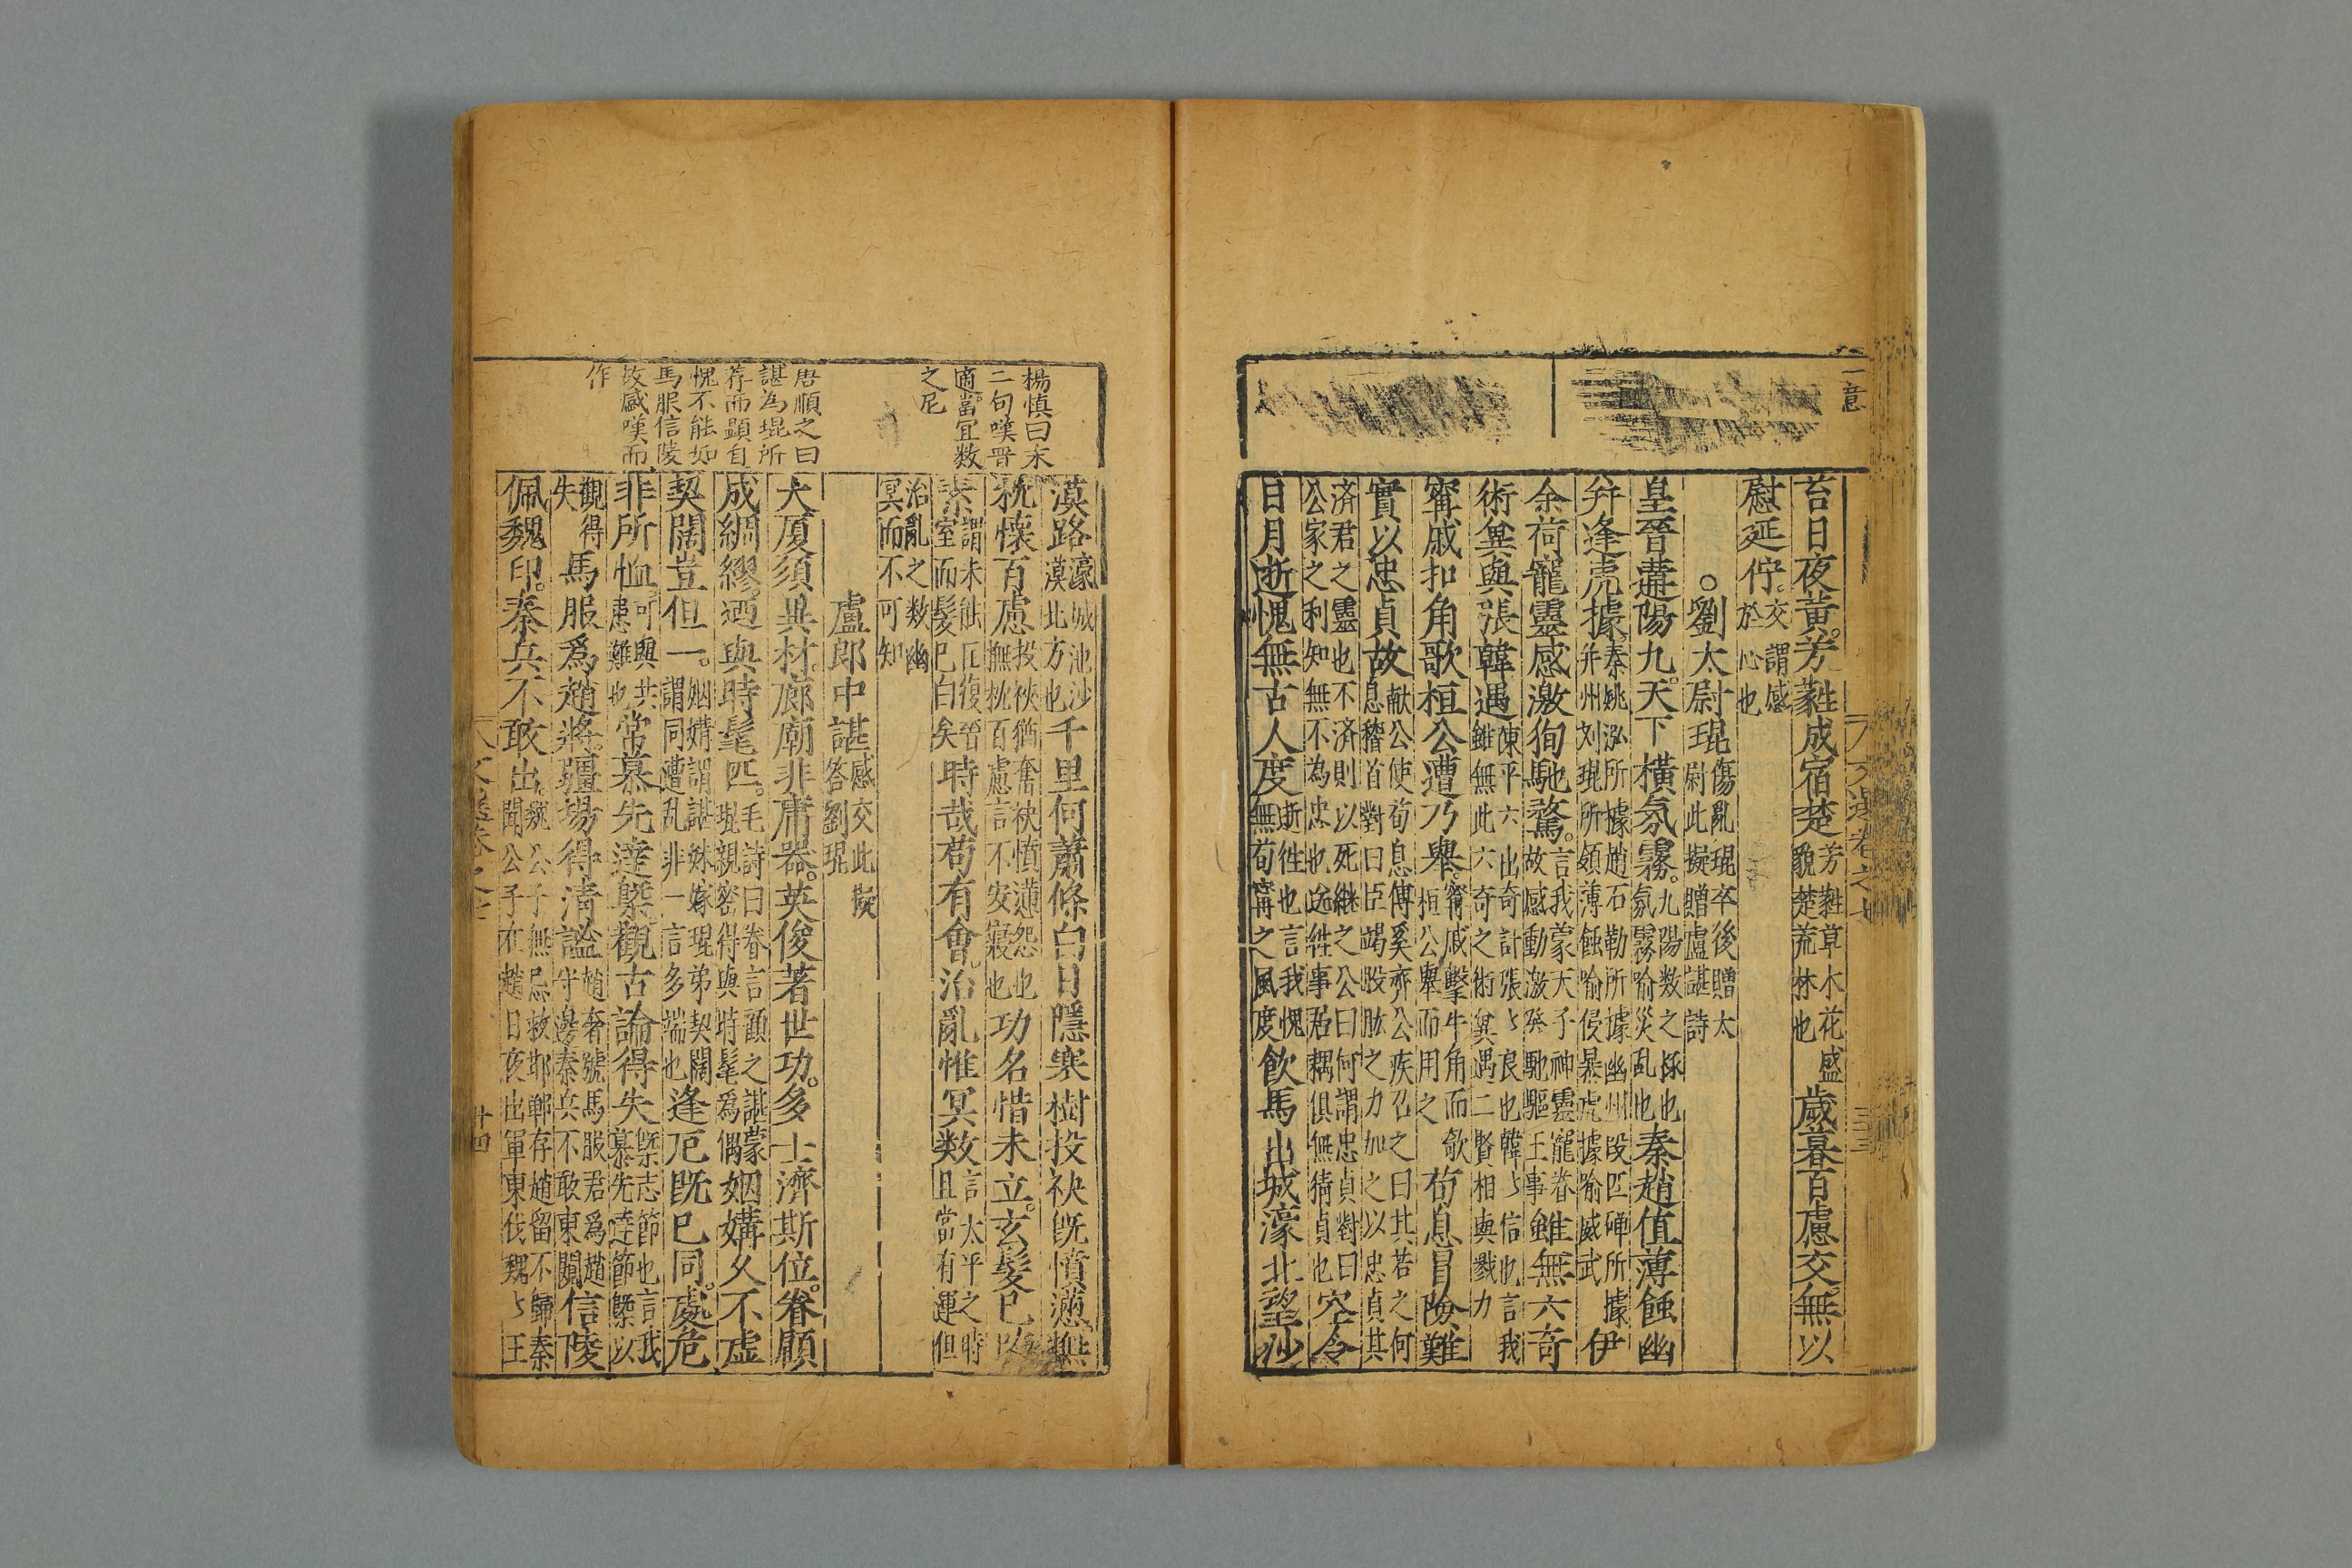 一意
苔日夜黄。芳蕤成宿楚芳蕤草木花盛貌楚荒林也歲暮百慮交。無以
慰延佇。交謂感於心也
○劉太尉琨傷亂琨卒後贈太尉此擬贈盧諶詩
皇晉遘陽九。天下橫氛霧。九陽数之㧞也氛霧喻災乱也秦趙值薄蝕幽
并逢虎據。秦姚泓所據趙石勒所據幽州叚匹磾所據并州刘琨所領薄蝕喻侵暴虎據喻威武伊
余荷寵靈感激狥馳騖。言我蒙天子神靈寵眷故感動激發馳驅王事雖無六奇
術兾與張韓遇陳平六出奇計張〻良也韓〻信也言我雖無此六奇之術兾遇二賢相與戮力
甯戚扣角歌桓公遭乃舉。甯戚擊牛角而歌桓公舉而用之荀息冒險難
實以忠貞故献公使荀息傅奚齊公疾召之曰其若之何息稽首對曰臣竭股肱之力加之以忠貞其
済君之靈也不済則以死継之公曰何謂忠貞對曰公家之利知無不為忠也送徃事居耦俱無猜貞也空令
日月逝愧無古人度逝徃也言我愧無荀甯之風度飲馬出城濠北望沙
文選卷之七
楊慎曰末
二句嘆晋
適當冝数
之厄
漠路濠城池沙漠北方也千里何蕭條白日隱寒樹投袂旣憤懣撫
枕懷百慮投袂猶奮袂憤懣怨也撫枕百慮言不安寢也功名惜未立。玄髮已
素謂未能匡復晉室而髮已白矣時哉苟有會。治亂惟冥数言太平之時且當有運但
治亂之数幽冥而不可知
盧郎中諶感交此擬答劉琨
唐順之曰
諶為琨所
荐而顕自
愧不能如
馬服信陵
故感嘆而
作
大厦須異材。廊廟非庸器。英俊著世功。多士濟斯位。眷顧
成綢繆。廼與時髦匹。毛詩曰眷言顧之諶蒙琨親密得與時髦爲偶姻媾久不虚
契闊豈但一。姻媾謂諶妹嫁琨弟契闊謂同遭乱非一言多端也逢厄旣已同。處危
非所恤可與共患難也常慕先達槩觀古論得失槩志節也言我慕先逹節槩以
觀得失馬服爲趙將。疆場得清謐趙奢號馬服君爲趙守邊秦兵不敢東闚信陵
佩魏印。秦兵不敢出。魏公子無忌救邯鄲存趙留不歸秦聞公子在趙日夜出軍東伐魏〻王
文選卷之七
廿四